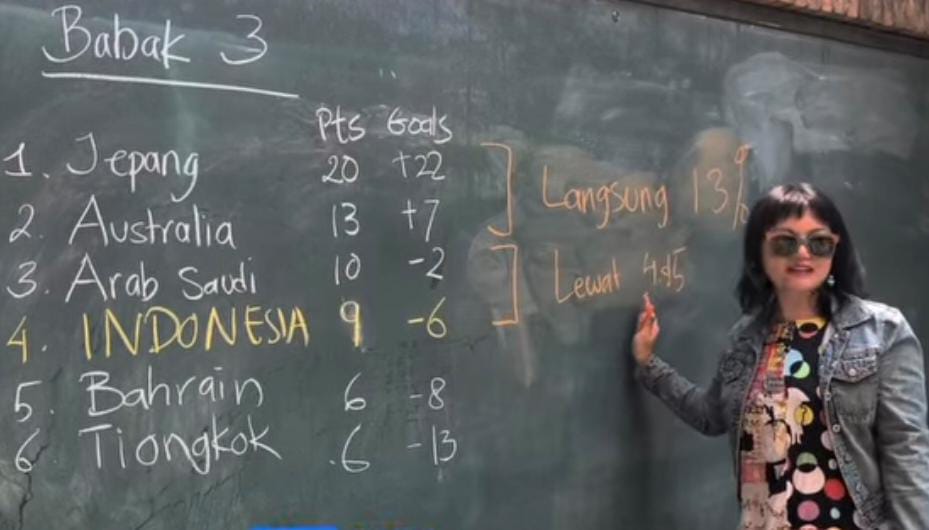 Babak 3
Pts Goals
1. Jepang 20 +22
2. Australia 13 +7
3. Arab Saudi 10 -2
4. INDONESIA 9 -6
5. Bahrain 6 -8
6. Tiongkok 6 -13
Langsung 13%
Lewat 4&5